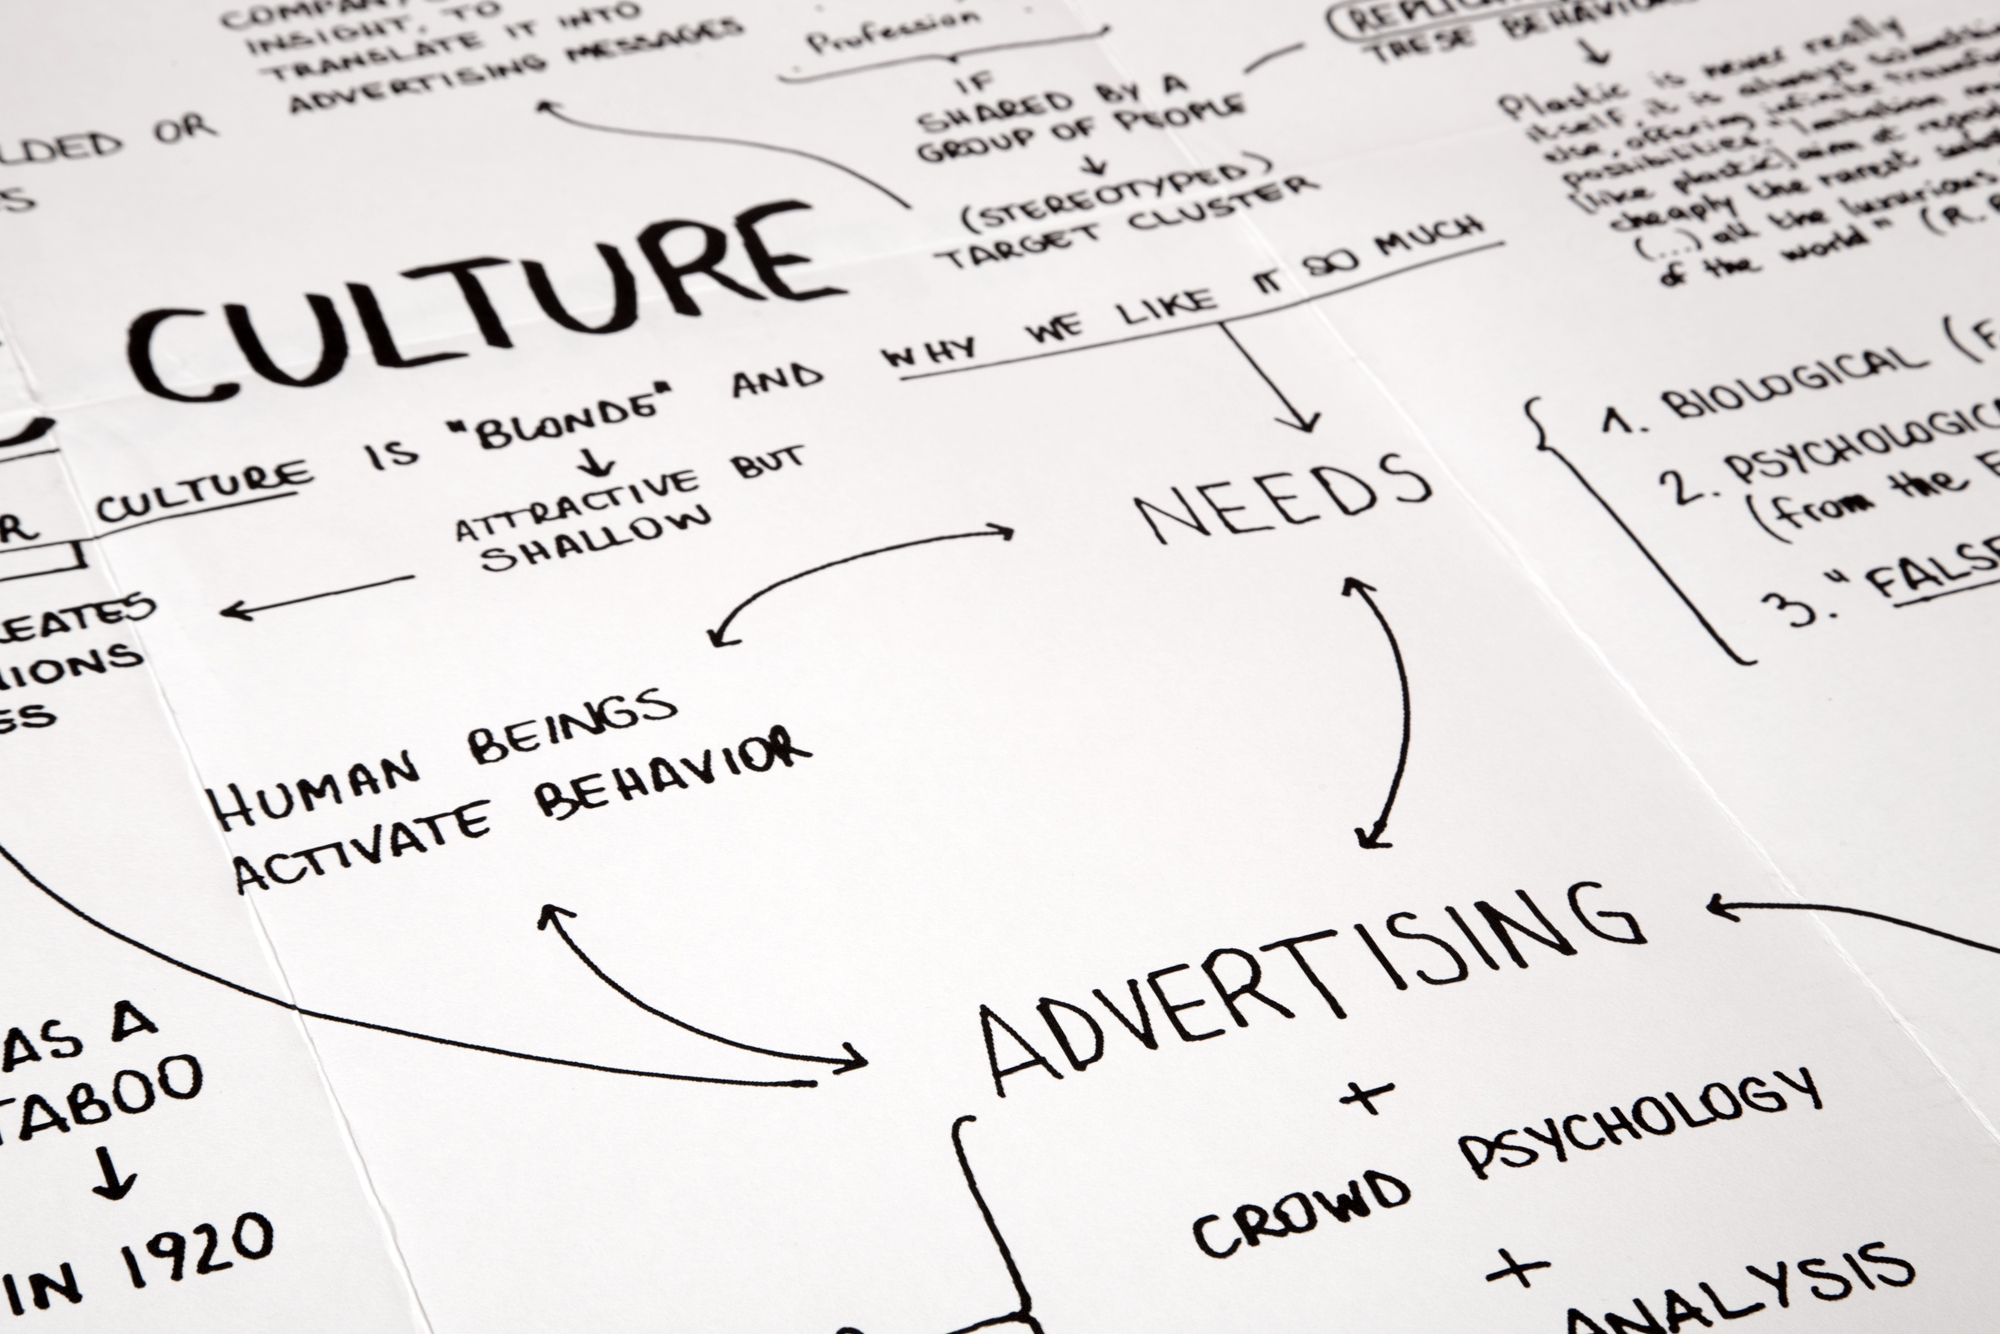 INSIGHT, TO
TRANSLATE IT INTO
ADVERTISING MESSAGES
LDED OR
Profession
IF
SHARED BY A
GROUP OF PEOPLE
(STEREOTYPED)
TARGET CLUSTER
THESE BEHAVIOR
Plastic is never really
itself, it is always
use, offering infinite
possibilities. "Imitation
[like plastic] aim at
cheaply the rarest
(...) all the luxurious
of the world" (R.
CULTURE
R CULTURE IS "BLONDE" AND WHY WE LIKE IT SO MUCH
ATTRACTIVE BUT
SHALLOW
EATES
IONS
ES
NEEDS
1. BIOLOGICAL (F
2. PSYCHOLOGICA
(from the E
3. "FALSE
HUMAN BEINGS
ACTIVATE BEHAVIOR
ADVERTISING
+
CROWD PSYCHOLOGY
+
ANALYSIS
AS A
TABOO
IN 1920